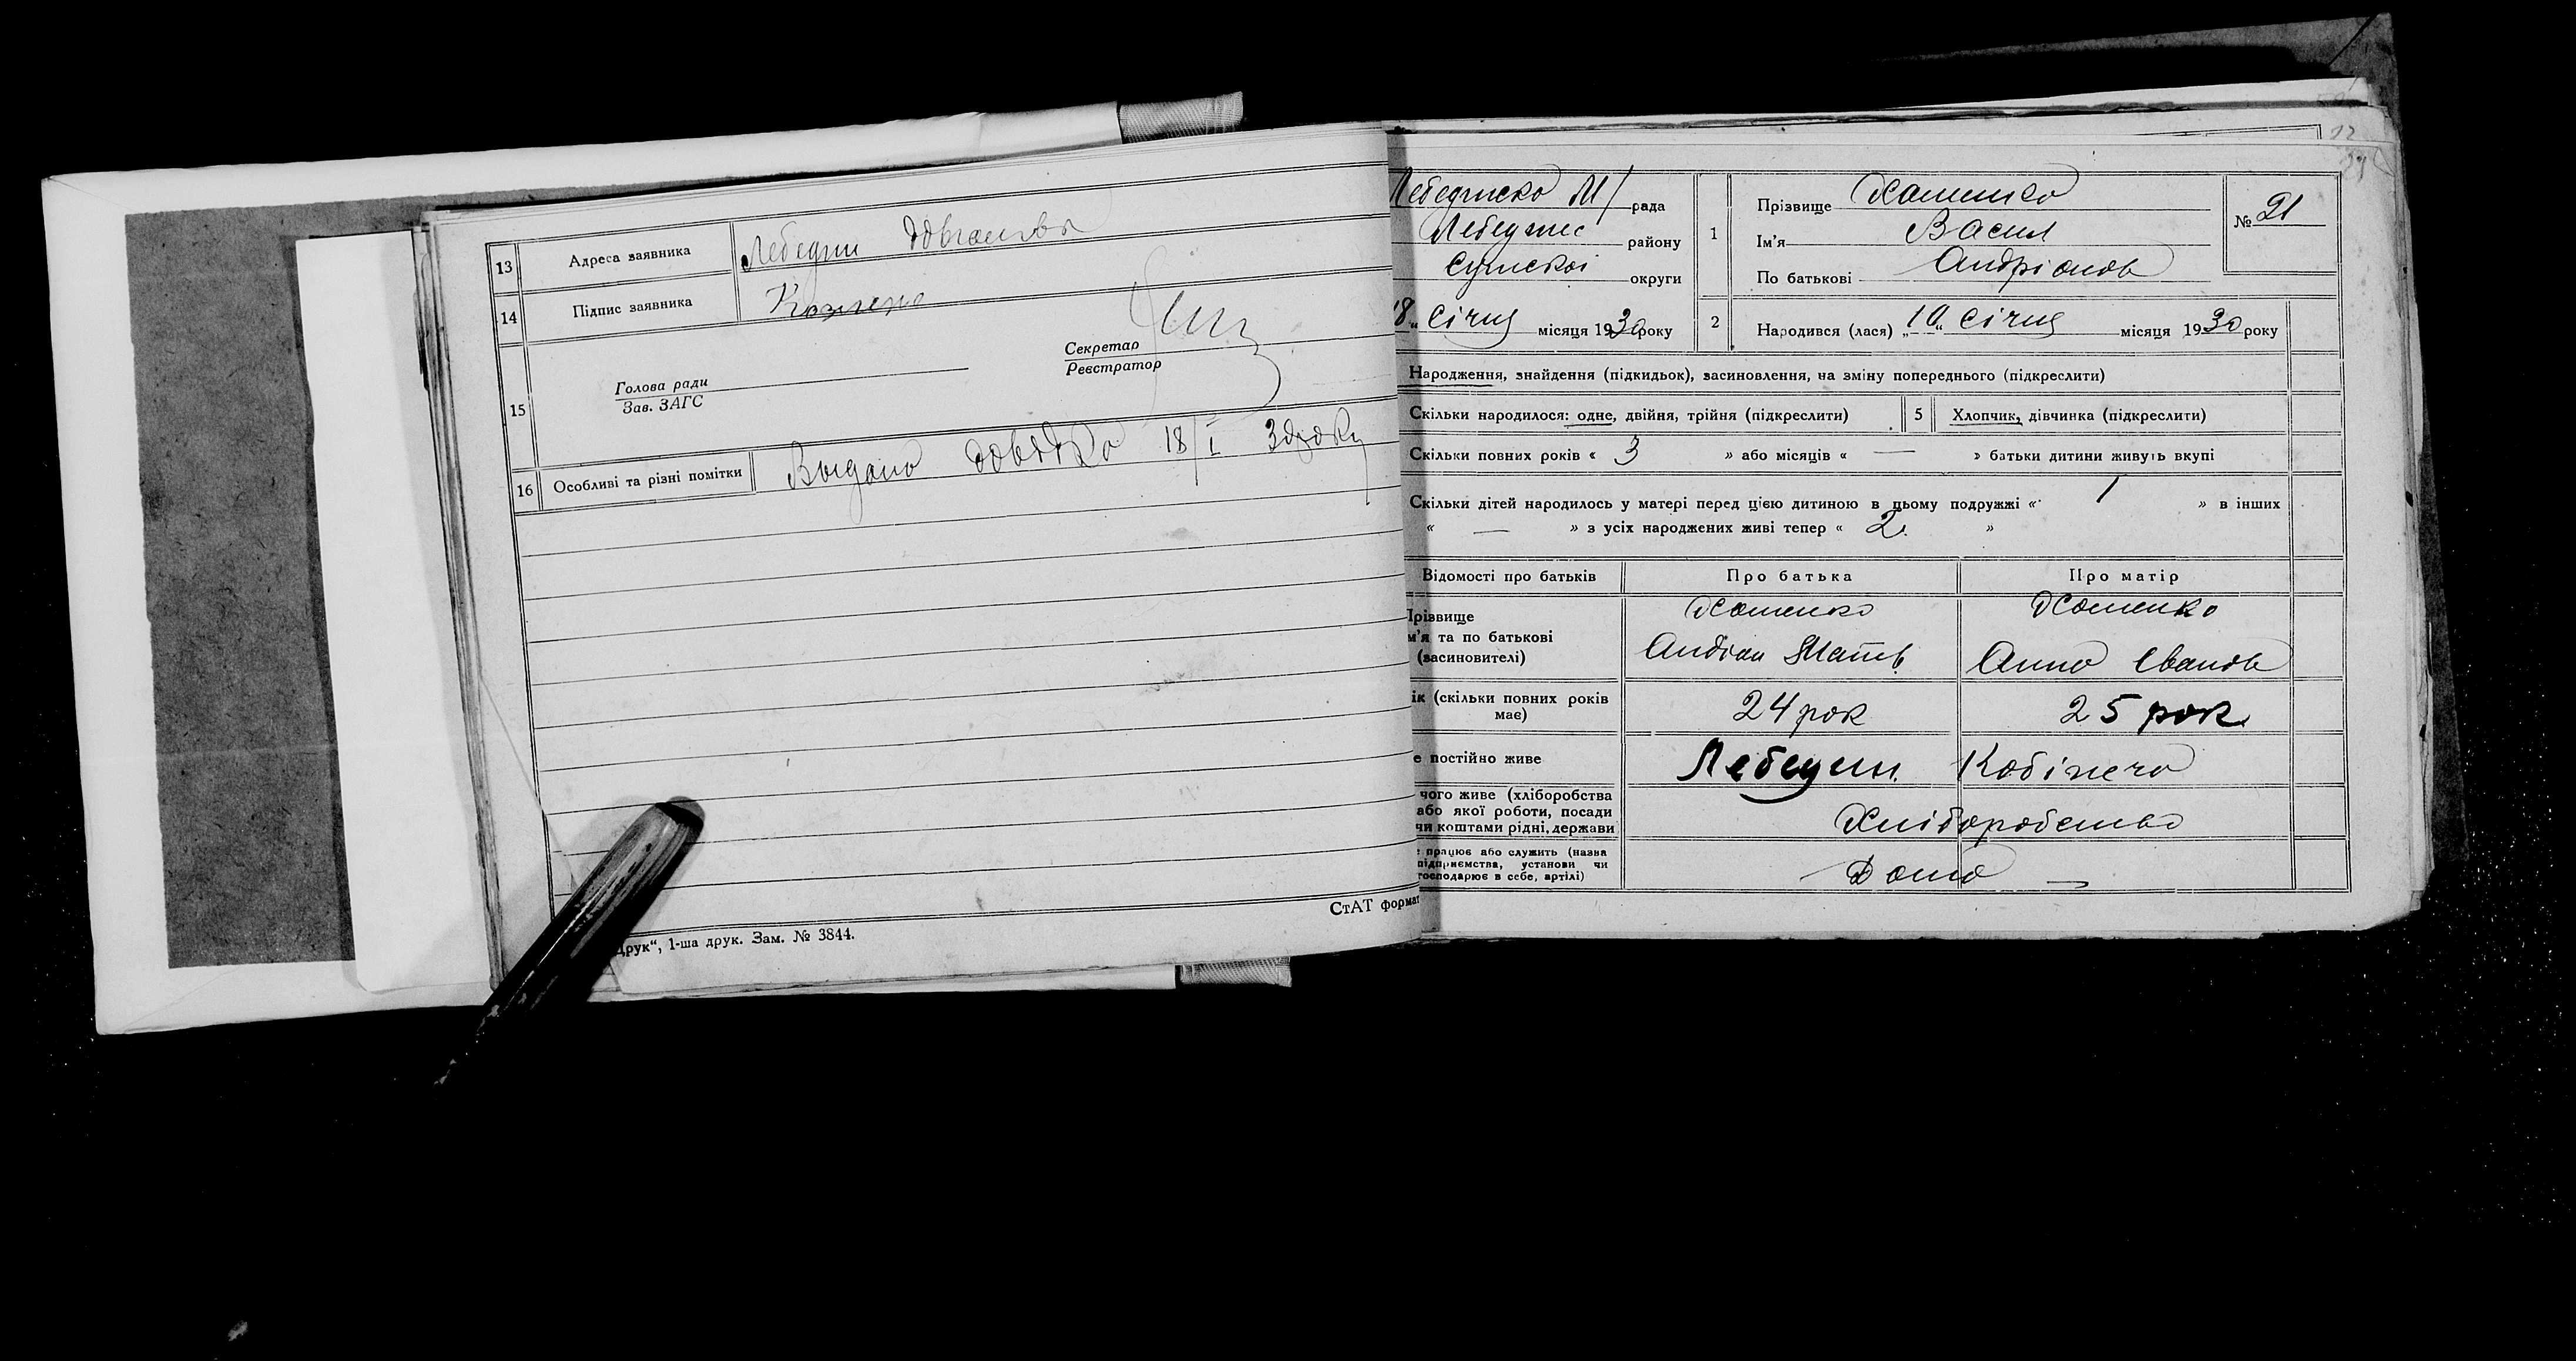 13 Адреса заявника Лебедин
14 Підпис заявника
15 Голова ради
Зав. ЗАГС
Секретар
Реєстратор
16 Особливі та різні помітки Выдано 18/I 30 року
СтАТ формат
Друк“, 1-ша друк. Зам. № 3844.
Лебединсько М/ рада
Лебединс району
Сумскої округи
18 „ Січня місяця 1930 року
1 Прізвище Хоменко
Ім’я Васил
По батькові Андріянов
№ 21
2 Народився (лася) „10“ Січня місяця 1930 року
Народження, знайдення (підкидьок), засиновлення, на зміну попереднього (підкреслити)
Скільки народилося: одне, двійня, трійня (підкреслити) 5 Хлопчик, дівчинка (підкреслити)
Скільки повних років « 3 » або місяців « — » батьки дитини живуть вкупі
Скільки дітей народилось у матері перед цією дитиною в цьому подружжі « 1 » в інших
« — » з усіх народжених живі тепер « 2 »
Відомості про батьків Про батька Про матір
Прізвище Хоменко Хоменко
м’я та по батькові
(засиновителі) Андіян Матв Анна Іванов
ік (скільки повних років має) 24 рок 25 рок
е постійно живе Лебедин
чого живе (хліборобства
або якої роботи, посади
чи коштами рідні, держави Хліборобство
працює або служить (назва
підприємства, установи чи
господарює в себе, артілі) Дома —